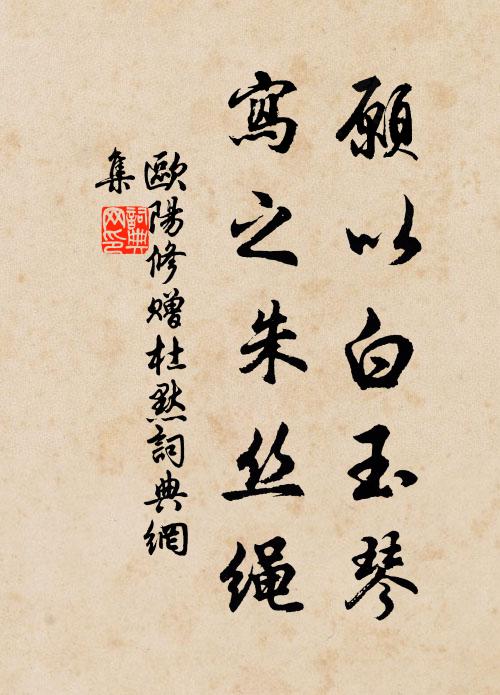 願以白玉琴
寫之朱丝绳
歐陽修贈杜默詞典網
集
詞典
网印